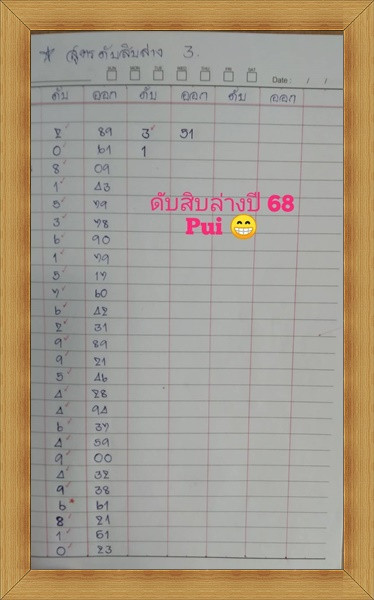 * สูตรดับสิบล่าง 3.
Date : / /
ดับ ออก ดับ ออก ดับ ออก
2 89 3 51
0 61 1
8 09
1 43
5 79
3 78
6 90
1 79
5 17
7 60
6 42
2 31
9 89
9 21
5 46
4 28
4 94
6 37
4 59
9 00
4 32
9 38
6 61
8 21
1 51
0 23
ดับสิบล่างปี 68
Pui 😁